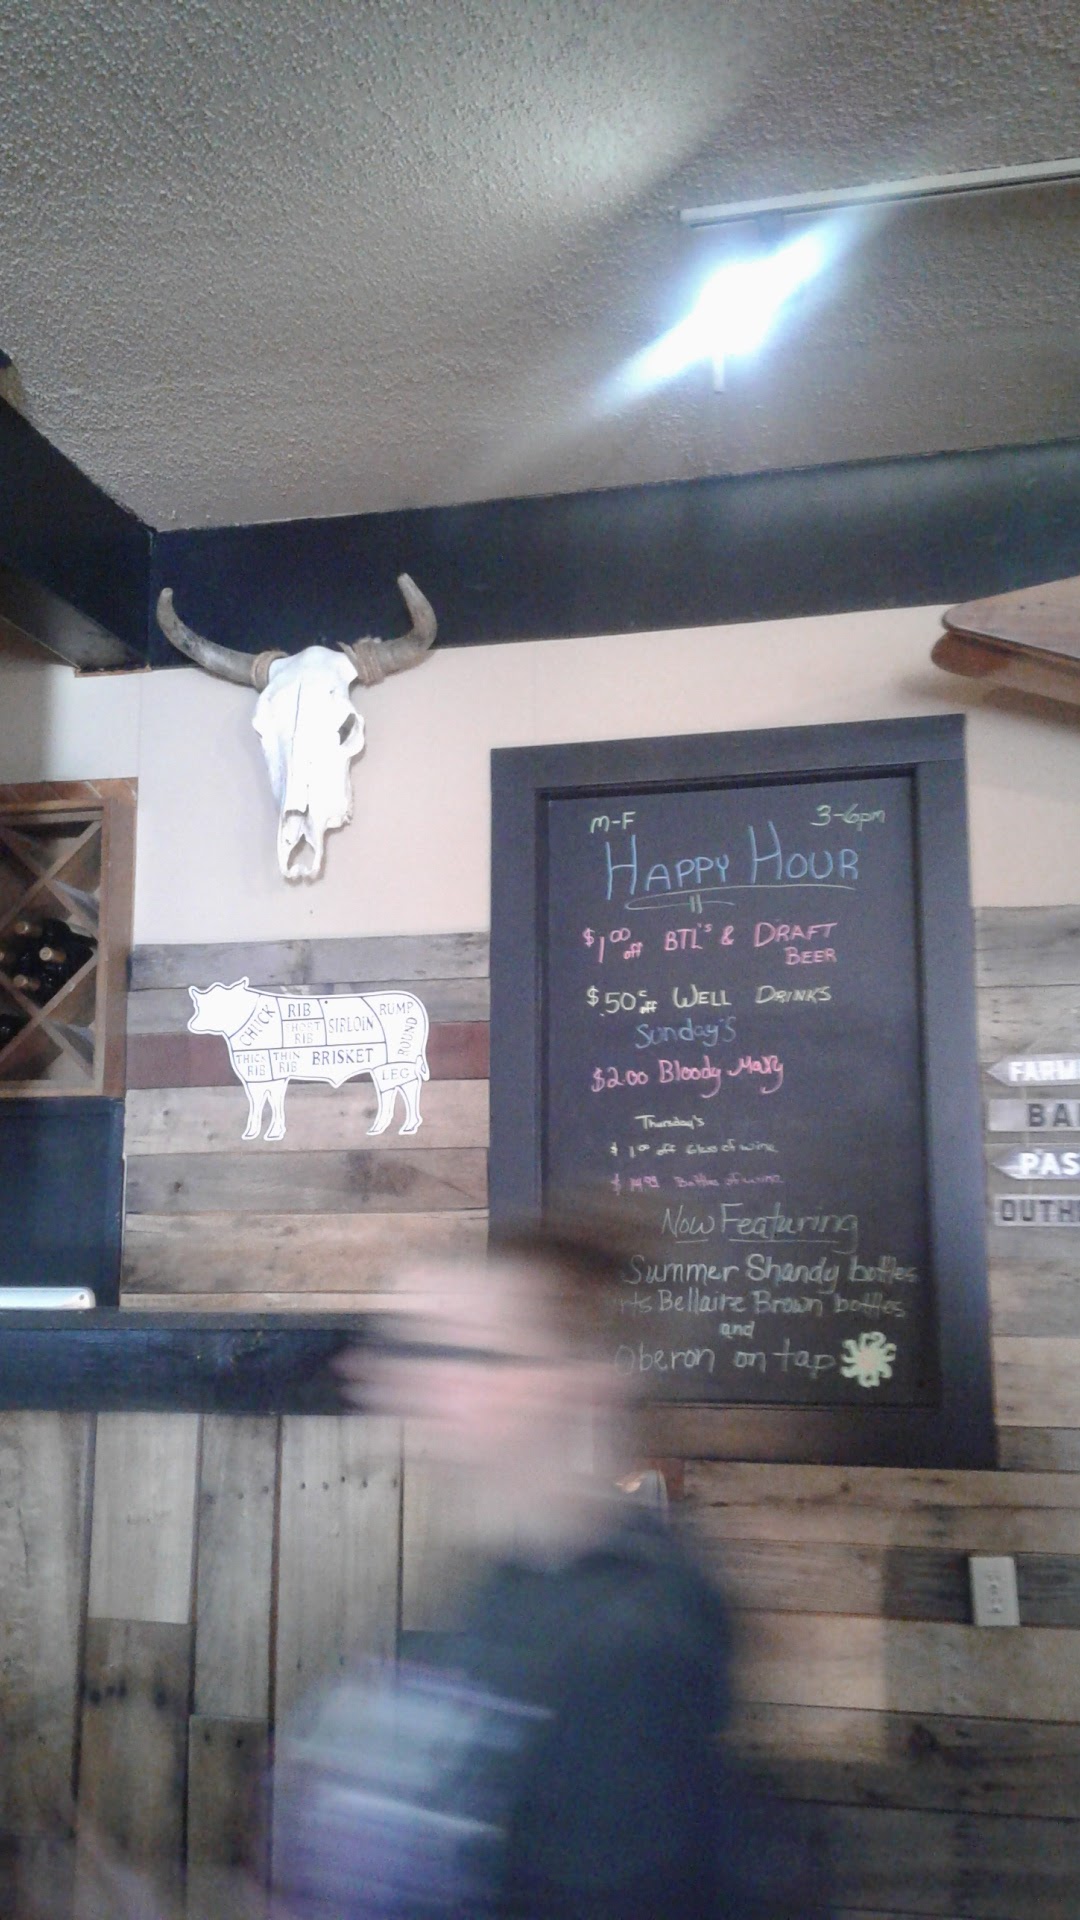 M-F 3-6pm
HAPPY HOUR
$1.00 off BTL's & DRAFT
BEER
$.50¢ off WELL DRINKS
Sunday's
$2.00 Bloody Mary
Thursday's
$1.00 off Glass of wine
$14.99 Bottles of wine
Now Featuring
Summer Shandy bottles
Bellaire Brown bottles
and
Oberon on tap
CHUCK
RIB
SHORT
RIB
SIRLOIN
RUMP
ROUND
THICK
RIB
THIN
RIB
BRISKET
LEG
FARM
BA
PAS
OUTH